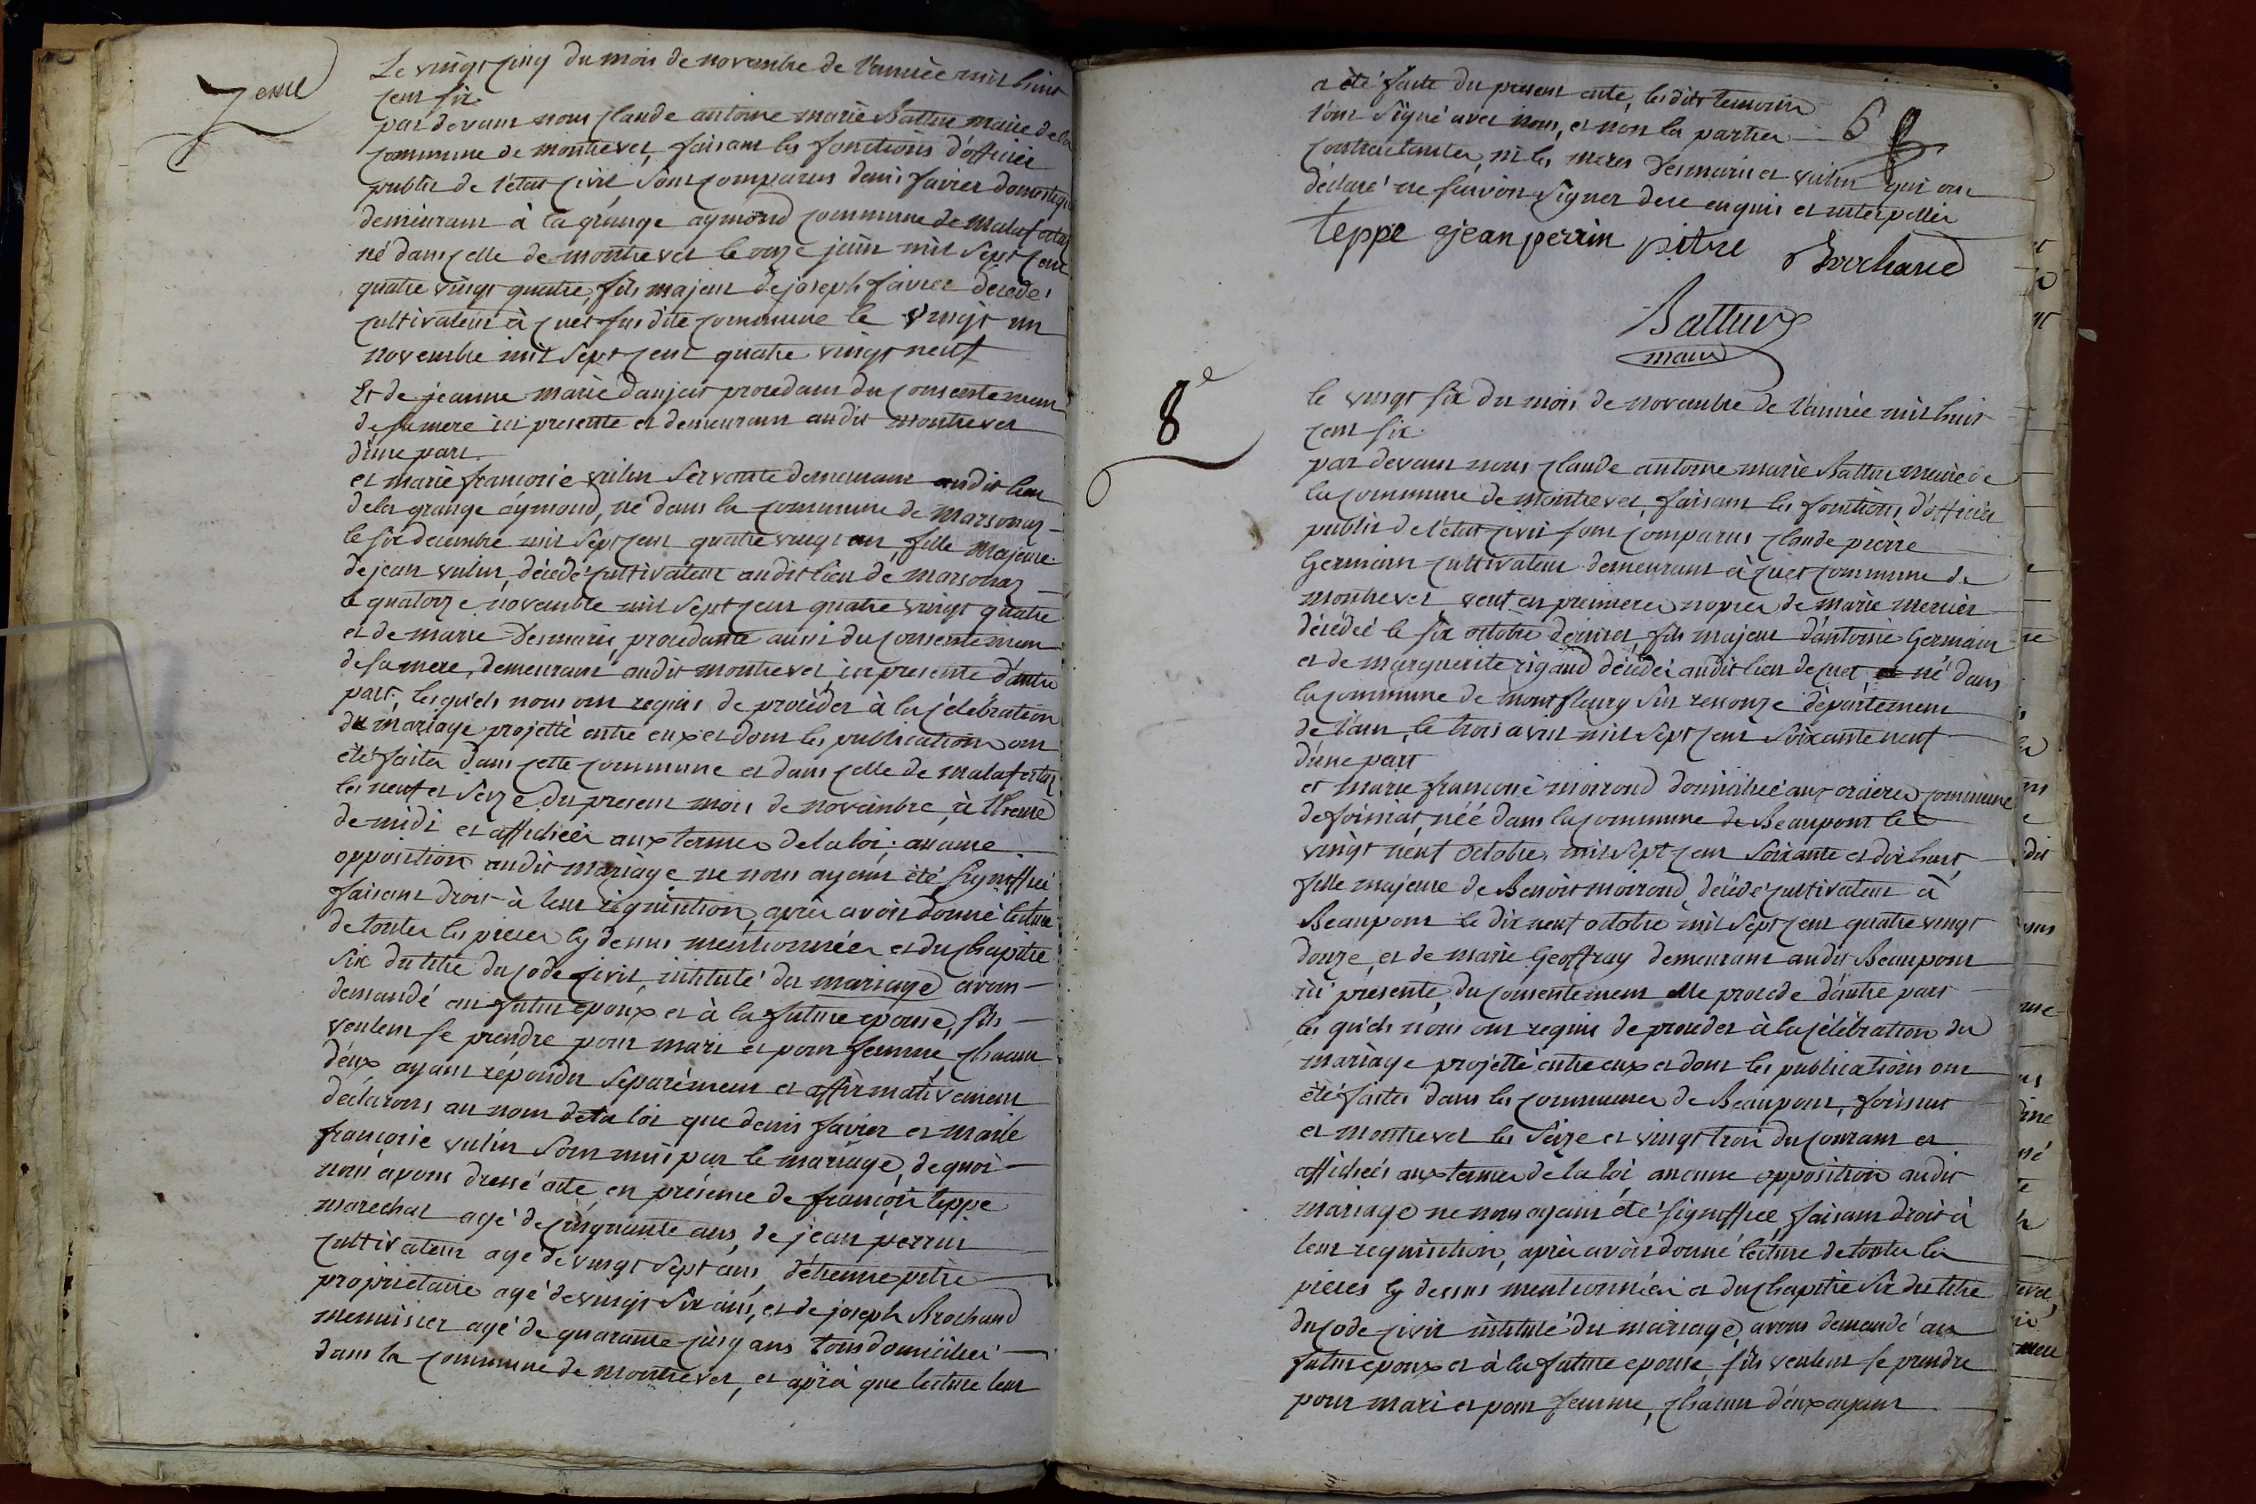 7eme
Le vingt cinq du mois de novembre de l'année mil huit
cent six
par devant nous claude antoine marie Battur maire de la
commune de montrevel, faisant les fonctions d'officier
public de l'état civil, sont comparus denis favier domestique
demeurant à la grange aymond commune de Malafretaz
né dans celle de montrevel le onze juin mil sept cent
quatre vingt quatre, fils majeur de joseph favier décédé
cultivateur à cuet susdite commune le vingt un
novembre mil sept cent quatre vingt neuf
Et de jeanne marie danjat procedant du consentement
de sa mere ici presente et demeurant audit montrevel
d'une part.
et marie françoise vulin servante demeurant audit lieu
de la grange aymond, né dans la commune de Marsonaz
le six decembre mil sept cent quatre vingt un, fille majeure
de jean vulin, décédé cultivateur audit lieu de marsonaz
le quatorze novembre mil sept cent quatre vingt quatre
et de marie desmaris procedante aussi du consentement
de sa mere, demeurant audit montrevel ici presente d'autre
part, lesquels nous ont requis de procéder à la célébration
du mariage projetté entre eux et dont les publications ont
été faites dans cette commune et dans celle de malafretaz
les neuf et seize du present mois de novembre, à l'heure
de midi et affichées aux termes de la loi; aucune
opposition audit mariage ne nous ayant été signiffié
faisant droit à leur réquisition, après avoir donné lecture
de toutes les pieces cy dessus mentionnées et du chapitre
six du titre du code civil, intitulé du mariage avons
demandé au futur epoux et à la future epouse, s'ils
veulent se prendre pour mari et pour femme, chacun
d'eux ayant répondu séparément et affirmativement
déclarons au nom de la loi que denis favier et marie
françoise vulin sont unis par le mariage, de quoi
nous avons dressé acte, en présence de françois teppe
marechal agé de cinquante ans, de jean perrin
cultivateur agé de vingt sept ans, d'etienne pitre
propriétaire agé de vingt six ans, et de joseph Brochand
menuisier agé de quarante cinq ans tous domiciliés
dans la commune de montrevel, et après que lecture leur
a été faite du present acte, les dits temoins
l'ont signé avec nous, et non les parties
contractantes, ni les meres desmaris et vulin qui ont
déclaré ne savoir signer de ce enquis et interpellés
6
teppe jean perrin pitre Brochand
Battur
maire
8e
le vingt six du mois de novembre de l'année mil huit
cent six.
par devant nous claude antoine marie Battur maire de
la commune de montrevel, faisant les fonctions d'officier
public de l'état civil sont comparus claude pierre
Germain cultivateur demeurant à cuet commune de
montrevel, veuf en premieres nopces de marie mercier
décédée le six octobre dernier, fils majeur d'antoine Germain
et de marguerite rigaud décédés audit lieu de cuet, né dans
la commune de montfleury sur ressouze département
de l'ain, le trois avril mil sept cent soixante neuf
d'une part
et marie françoise moirond domiciliée aux oraieres commune
de foissiat, néé dans la commune de Beaupont le
vingt neuf octobre, mil sept cent soixante et dix huit,
fille majeure de Benoit moirond, décédé cultivateur à
Beaupont le dix neuf octobre mil sept cent quatre vingt
douze, et de marie Geoffray demeurant audit Beaupont
ici presente, du consentement elle procede d'autre part
les quels nous ont requis de proceder à la célébration du
mariage projetté entre eux et dont les publications ont
été faites dans les communes de Beaupont, foissiat
et montrevel les seize et vingt trois du courant et
affichées aux termes de la loi, aucune opposition audit
mariage ne nous ayant été signiffiée, faisant droit à
leur requisition, après avoir donné lecture de toutes les
pieces cy dessus mentionnées et du chapitre six du titre
du code civil intitulé du mariage, avons demandé au
futur epoux et à la future epouse, s'ils veulent se prendre
pour mari et pour femme, chacun d'eux ayant